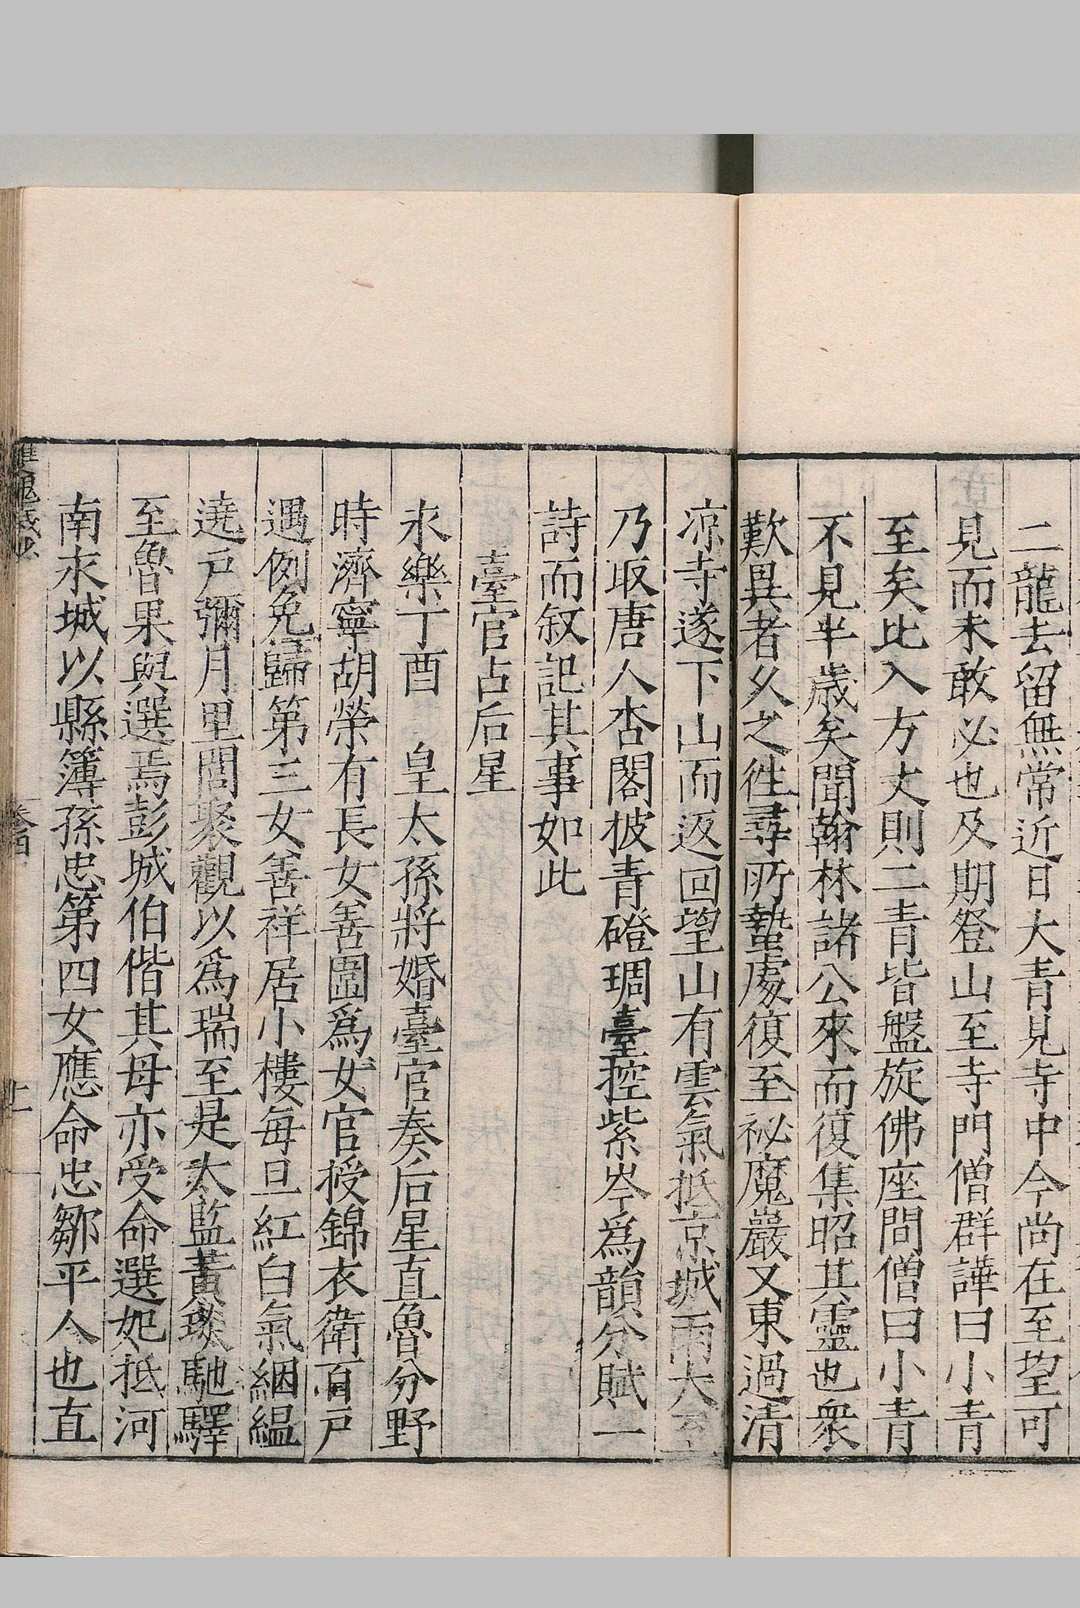 二龍去留無常近日大青見寺中今尚在至朢可
見而未敢必也及期登山至寺門僧群譁曰小青
至矣比入方丈則二青皆盤旋佛座間僧曰小青
不見半歲矣聞翰林諸公來而復集昭其靈也衆
歎異者久之徃尋所蟄處復至祕魔巖又東過清
凉寺遂下山而返回望山有雲氣抵京城雨大至
乃取唐人杏閣披青磴琱臺控紫岑爲韻分賦一
詩而叙記其事如此
臺官占后星
永樂丁酉　皇太孫將婚臺官奏后星直魯分野
時濟寧胡榮有長女善圍爲女官授錦衣衛百戶
遇例免歸第三女善祥居小樓每旦紅白氣絪縕
遶戶彌月里閭聚觀以爲瑞至是太監黃琰馳驛
至魯果與選焉彭城伯偕其母亦受命選妃抵河
南永城以縣簿孫忠第四女應命忠鄒平人也直
卷四
十一